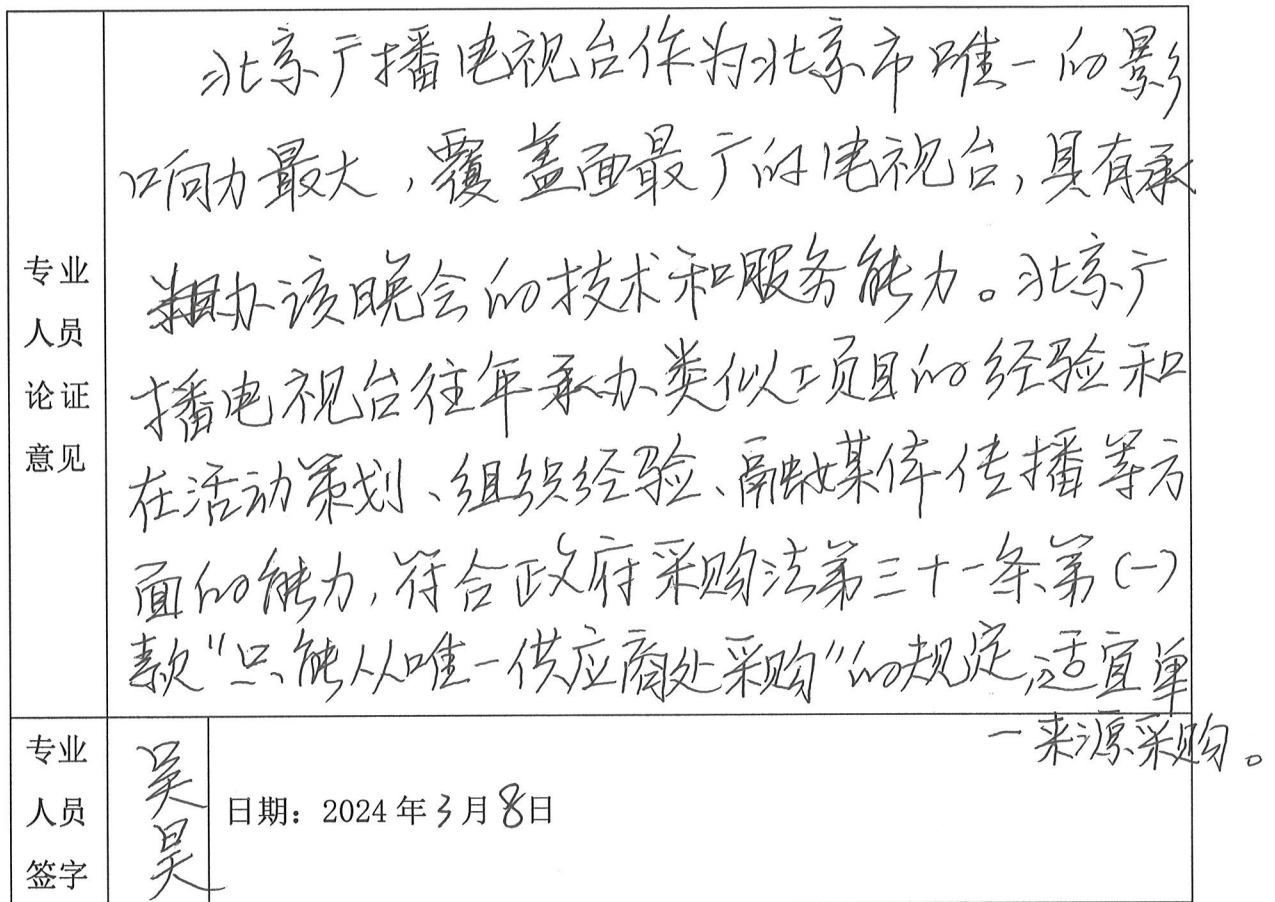 北京广播电视台作为北京市唯一的影
响力最大，覆盖面最广的电视台，具有承
办该晚会的技术和服务能力。北京广
播电视台往年承办类似项目的经验和
在活动策划、组织经验、融媒体传播等方
面的能力，符合政府采购法第三十一条第(一)
款"只能从唯一供应商处采购"的规定，适宜单
一来源采购。
专业
人员
论证
意见
专业
人员
签字
吴昊
日期：2024年3月8日